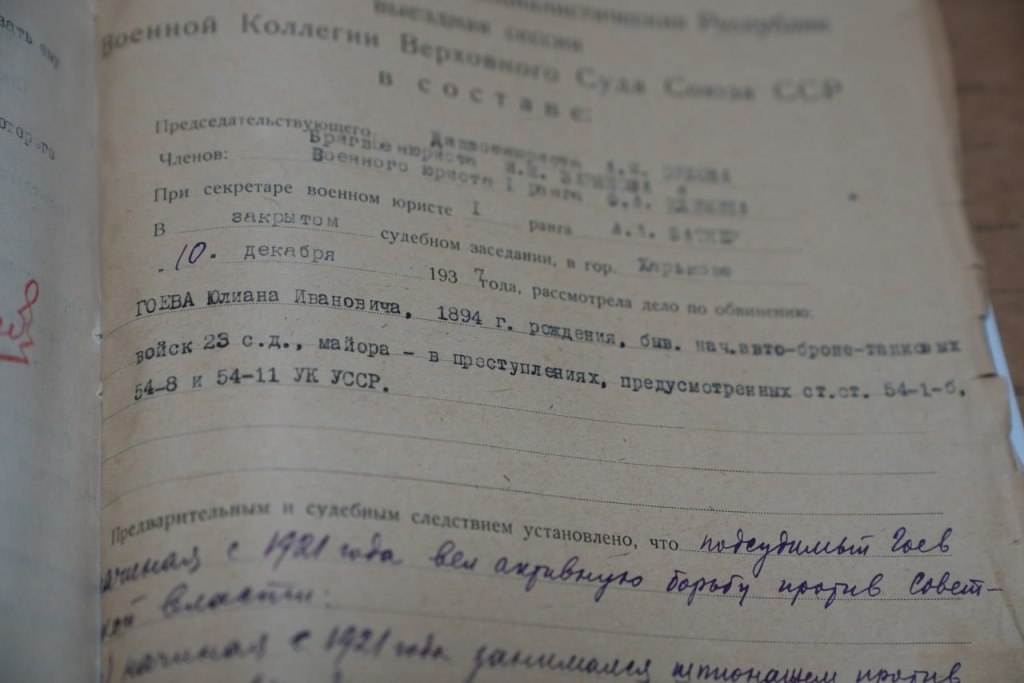 Республик
выездная сессия
Военной Коллегии Верховного Суда Союза ССР
в составе:
Председательствующего
Членов: Бригвоенюриста
Военного юриста 1 ранга
При секретаре военном юристе 1 ранга
В закрытом судебном заседании, в гор. Харькове
"10" декабря 1937 года, рассмотрела дело по обвинению
ГОЕВА Юлиана Ивановича, 1894 г. рождения, быв. нач.авто-броне-танковых
войск 23 с.д., майора – в преступлениях, предусмотренных ст.ст. 54-1-б,
54-8 и 54-11 УК УССР.
Предварительным и судебным следствием установлено, что подсудимый Гоев
начиная с 1921 года вел активную борьбу против Совет-
кой власти:
) начиная с 1921 года занимался шпионажем против